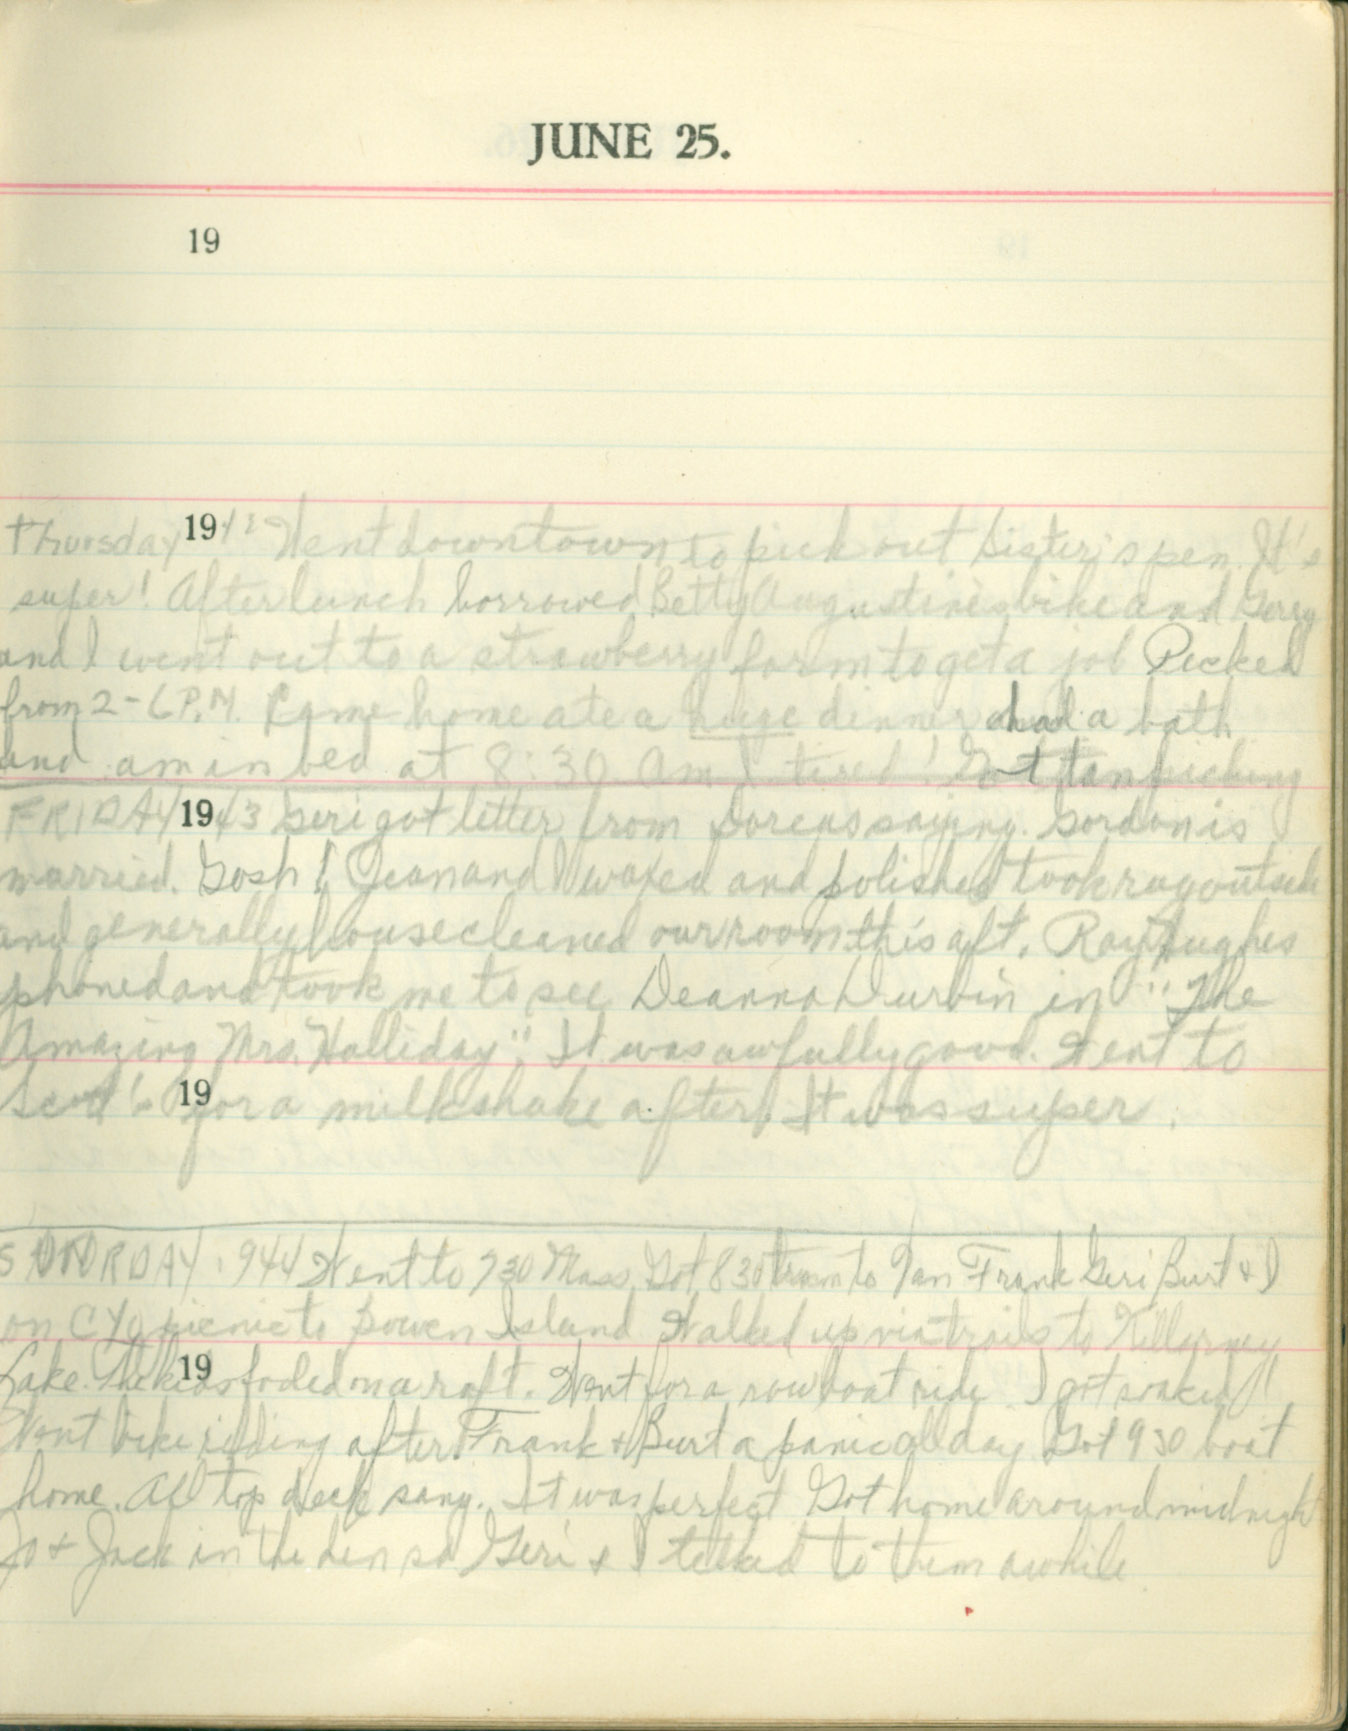 JUNE 25.
19
Thursday 1942 Went downtown to pick out Sister's pen. It's
super! After lunch borrowed Betty Augustine's bike and Gerry
and I went out to a strawberry farm to get a job Picked
from 2-6 P.M. Came home ate a huge dinner had a bath
and am in bed at 8:30 Am I tired! Got tan picking
FRIDAY 1943 Geri got letter from Dorcas saying Gordon is
married. Gosh! Jean and I waxed and polished took rug outside
and generally housecleaned our room this aft. Ray Hughes
phoned and took me to see Deanna Durbin in "The
Amazing Mrs. Halliday". It was awfully good. Went to
19
for a milkshake after. It was super.
1944 Went to 730 Mass. Got 830 to Frank Geri Burt & I
on CYO picnic to Bowen Island Walked up via trails to Killarney
19
Lake. The kids on a raft. Went for a rowboat ride I got soaked!!
Went bike riding after. Frank & Burt a panic all day Got 930 boat
home. All top deck sang. It was perfect Got home around midnight
Jo & Jack in the den so Geri & I talked to them awhile